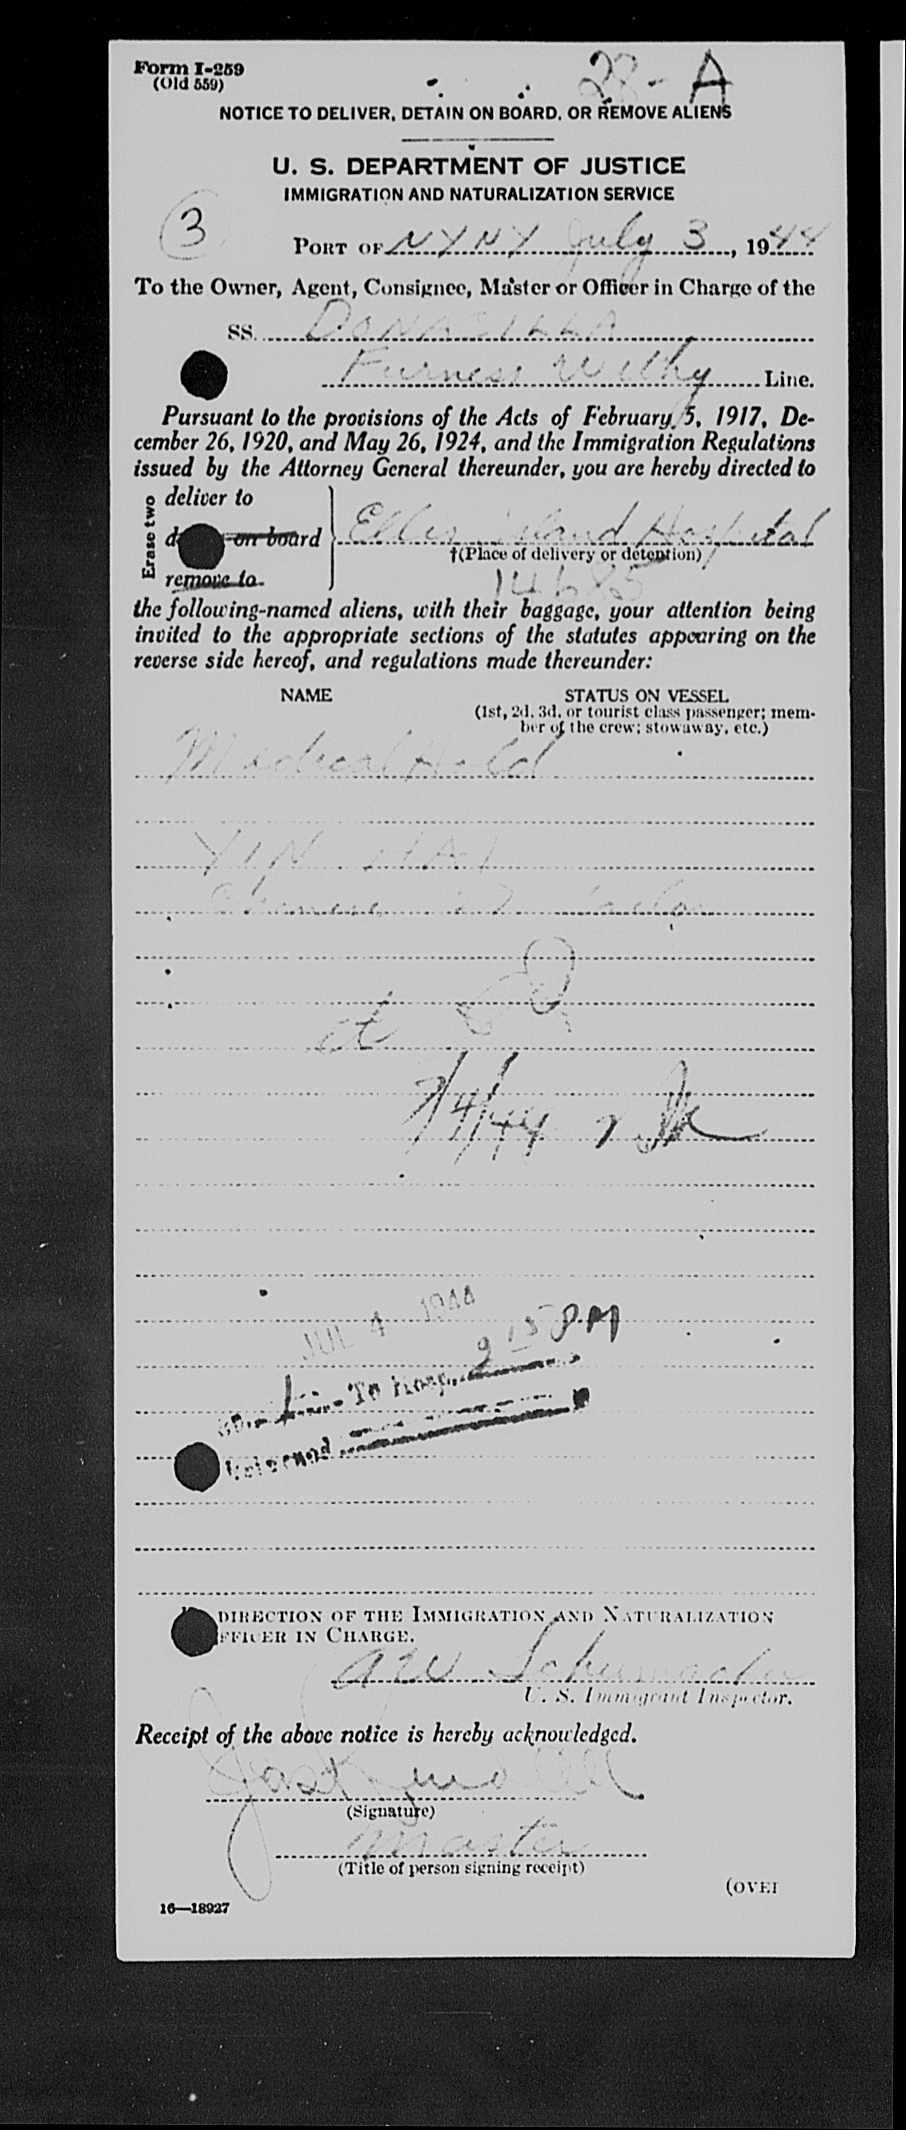 Form I-259
(Old 559)
28-A
NOTICE TO DELIVER, DETAIN ON BOARD, OR REMOVE ALIENS
U. S. DEPARTMENT OF JUSTICE
IMMIGRATION AND NATURALIZATION SERVICE
3
PORT OF NYNY July 3, 1944
To the Owner, Agent, Consignee, Master or Officer in Charge of the
SS. DONACILLA
Furness Withy Line.
Pursuant to the provisions of the Acts of February 5, 1917, De-
cember 26, 1920, and May 26, 1924, and the Immigration Regulations
issued by the Attorney General thereunder, you are hereby directed to
Erase two
deliver to
on board Ellis Island Hospital
†(Place of delivery or detention)
remove to
14685
the following-named aliens, with their baggage, your attention being
invited to the appropriate sections of the statutes appearing on the
reverse side hereof, and regulations made thereunder:
NAME STATUS ON VESSEL
(1st, 2d, 3d, or tourist class passenger; mem-
ber of the crew; stowaway, etc.)
Medical Hold
YIN HAI
Chinese
7/4/44
JUL 4 1944
9 15 P.M
To Hosp.
Returned
DIRECTION OF THE IMMIGRATION AND NATURALIZATION
OFFICER IN CHARGE.
AW Schumacher
U. S. Immigrant Inspector.
Receipt of the above notice is hereby acknowledged.
(Signature)
Master
(Title of person signing receipt)
(OVER
16—18927